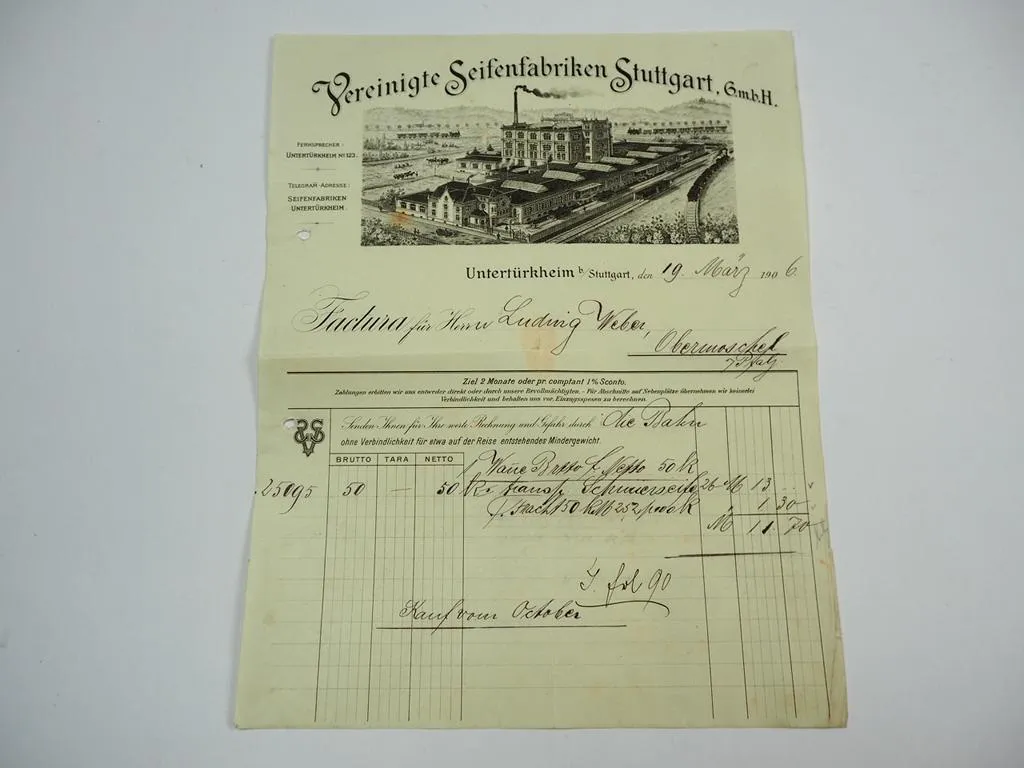 Vereinigte Seifenfabriken Stuttgart, G.m.b.H.
FERNSPRECHER:
UNTERTÜRKHEIM No 123.
TELEGRAM-ADRESSE:
SEIFENFABRIKEN
UNTERTÜRKHEIM.
Untertürkheim b/Stuttgart, den 19. März 1906.
Factura für Herrn Ludwig Weber,
Obermoschel
Pfalz
Ziel 2 Monate oder pr. comptant 1% Sconto.
Zahlungen erbitten wir uns entweder direkt oder durch unsere Bevollmächtigten. - Für Abschnitte auf Nebenplätze übernehmen wir keinerlei
Verbindlichkeit und behalten uns vor, Einzugsspesen zu berechnen.
Senden Ihnen für Ihre werte Rechnung und Gefahr durch die Bahn
ohne Verbindlichkeit für etwa auf der Reise entstehendes Mindergewicht.
BRUTTO TARA NETTO
1 Btto f. Netto 50 k
25095 50 — 50 k transp. Schmierseife 26 M 13
f. Fracht 50 k 1 30
M 11. 70
90
Kauf vom October